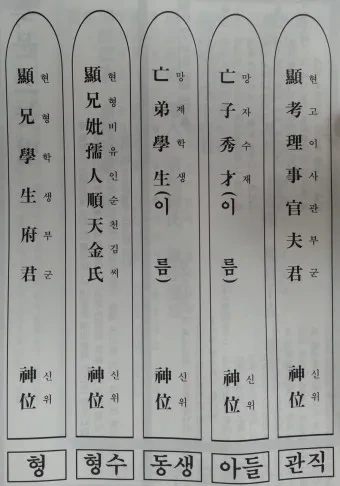 顯兄學生府君 神位
현형학생부군 신위
형
顯兄妣孺人順天金氏 神位
현형비유인순천김씨 신위
형수
亡弟學生(이름) 神位
망제학생 신위
동생
亡子秀才(이름) 神位
망자수재 신위
아들
顯考理事官夫君 神位
현고이사관부군 신위
관직